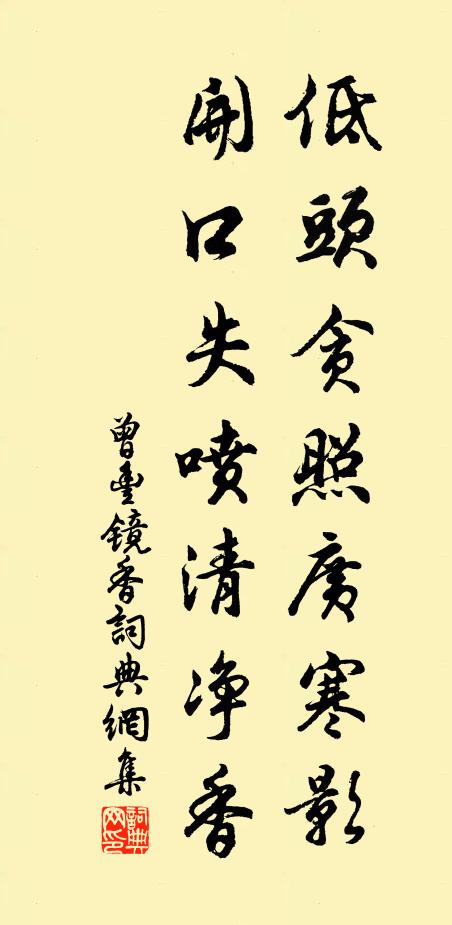 低頭貪照廣寒影
開口失噴清净香
曾豊鏡香詞典網集
詞典網印